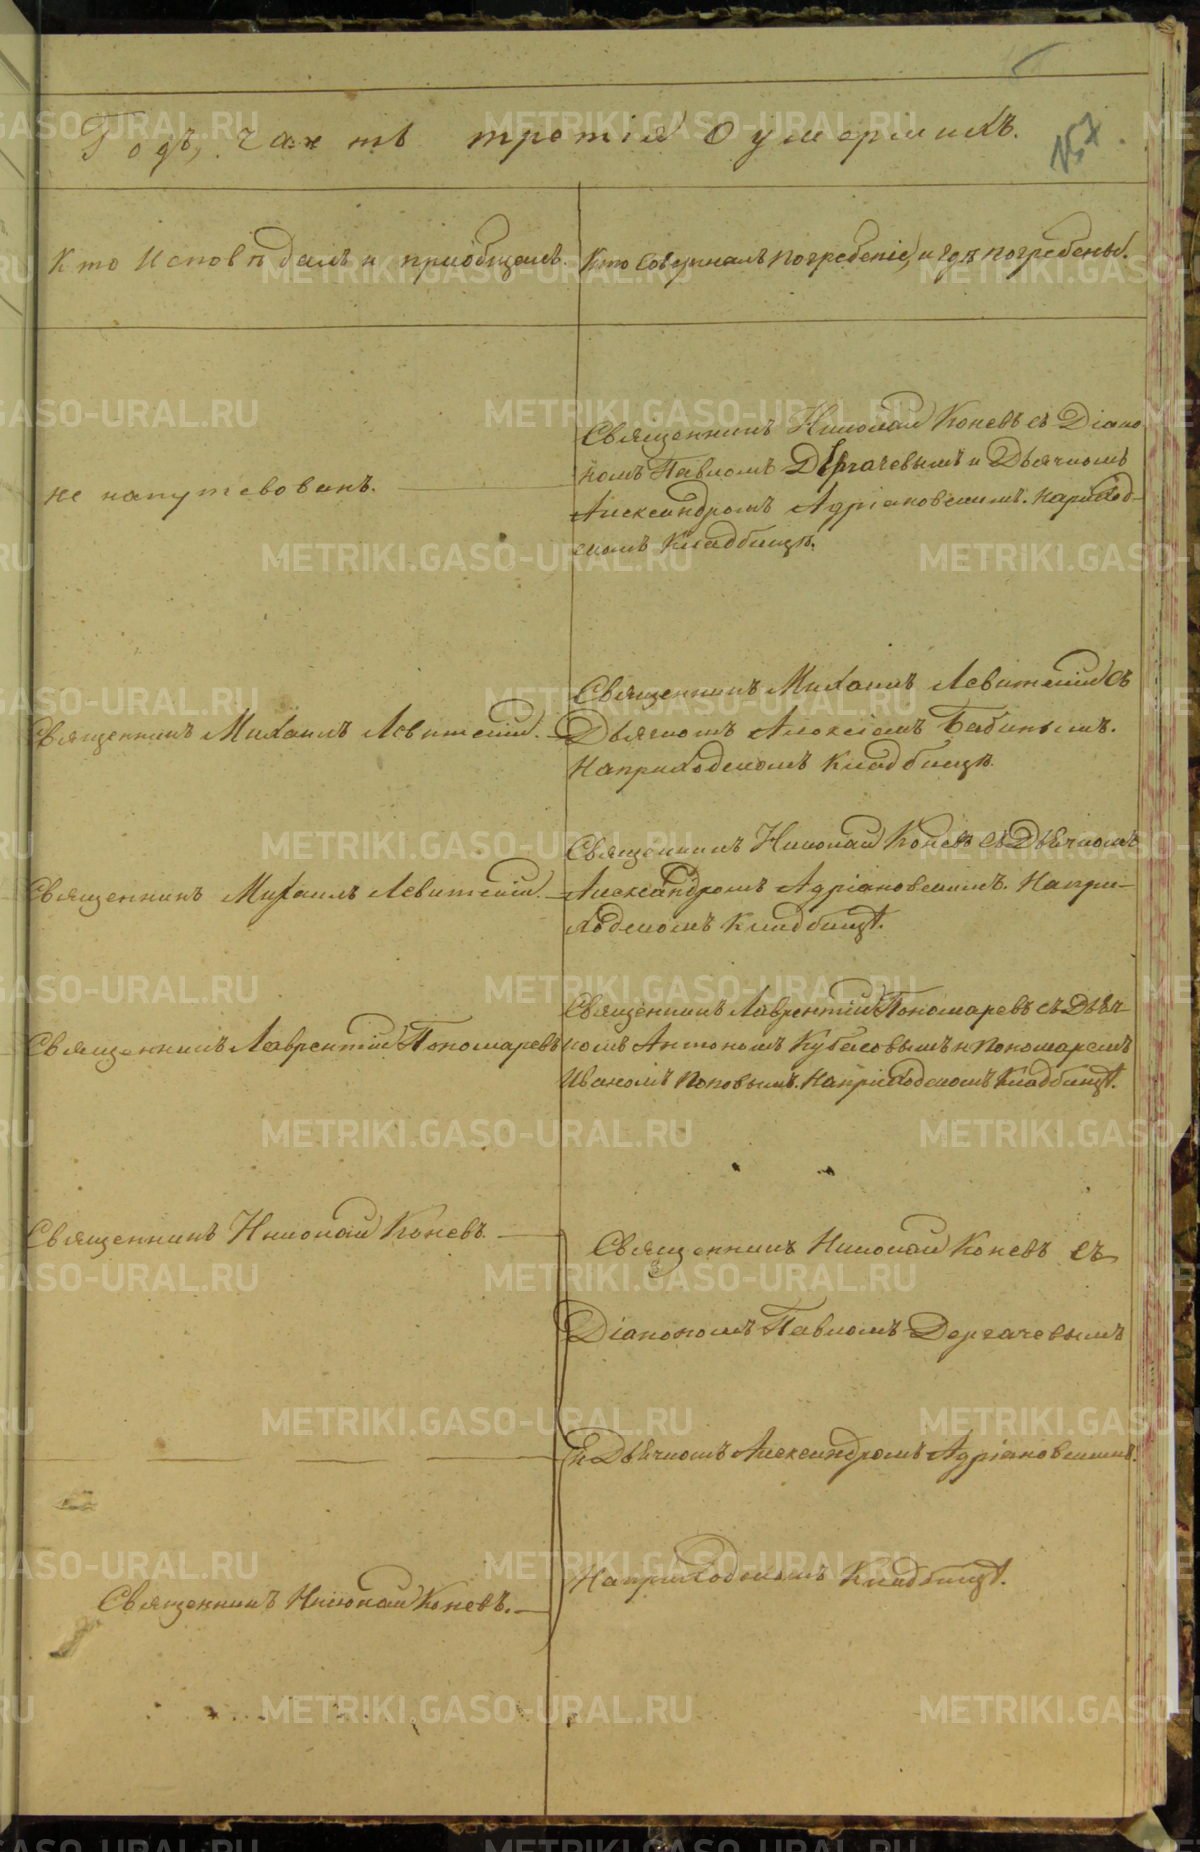 Годъ, часть третія о умершихъ.
Кто Исповѣдалъ и приобщалъ.
Кто Совершалъ погребеніе, и гдѣ погребены.
не напутсвованъ.
Священникъ Николай Коневъ съ Діако
номъ Павломъ Дергачевымъ и Дьячкомъ
Александромъ Адріановскимъ. на приход-
скомъ Кладбищѣ.
Священникъ Михаилъ Левитскій.
Священникъ Михаилъ Левитскій съ
Дьячкомъ Алексіемъ Бабинымъ.
На приходскомъ Кладбищѣ.
Священникъ Михаилъ Левитскій.
Священникъ Николай Коневъ съ Дьячкомъ
Александромъ Адріановскимъ. На при-
ходскомъ Кладбищѣ.
Священникъ Лаврентій Пономаревъ
Священникъ Лаврентій Пономаревъ съ Дьяч-
комъ Антономъ Кубасовымъ и Пономаремъ
Иваномъ Поповымъ. На приходскомъ Кладбищѣ.
Священникъ Николай Коневъ.
Священникъ Николай Коневъ съ
Діакономъ Павломъ Дергачевымъ
и Дьячкомъ Александромъ Адріановскимъ.
На приходскомъ Кладбищѣ.
Священникъ Николай Коневъ.
METRIKI.GASO-URAL.RU